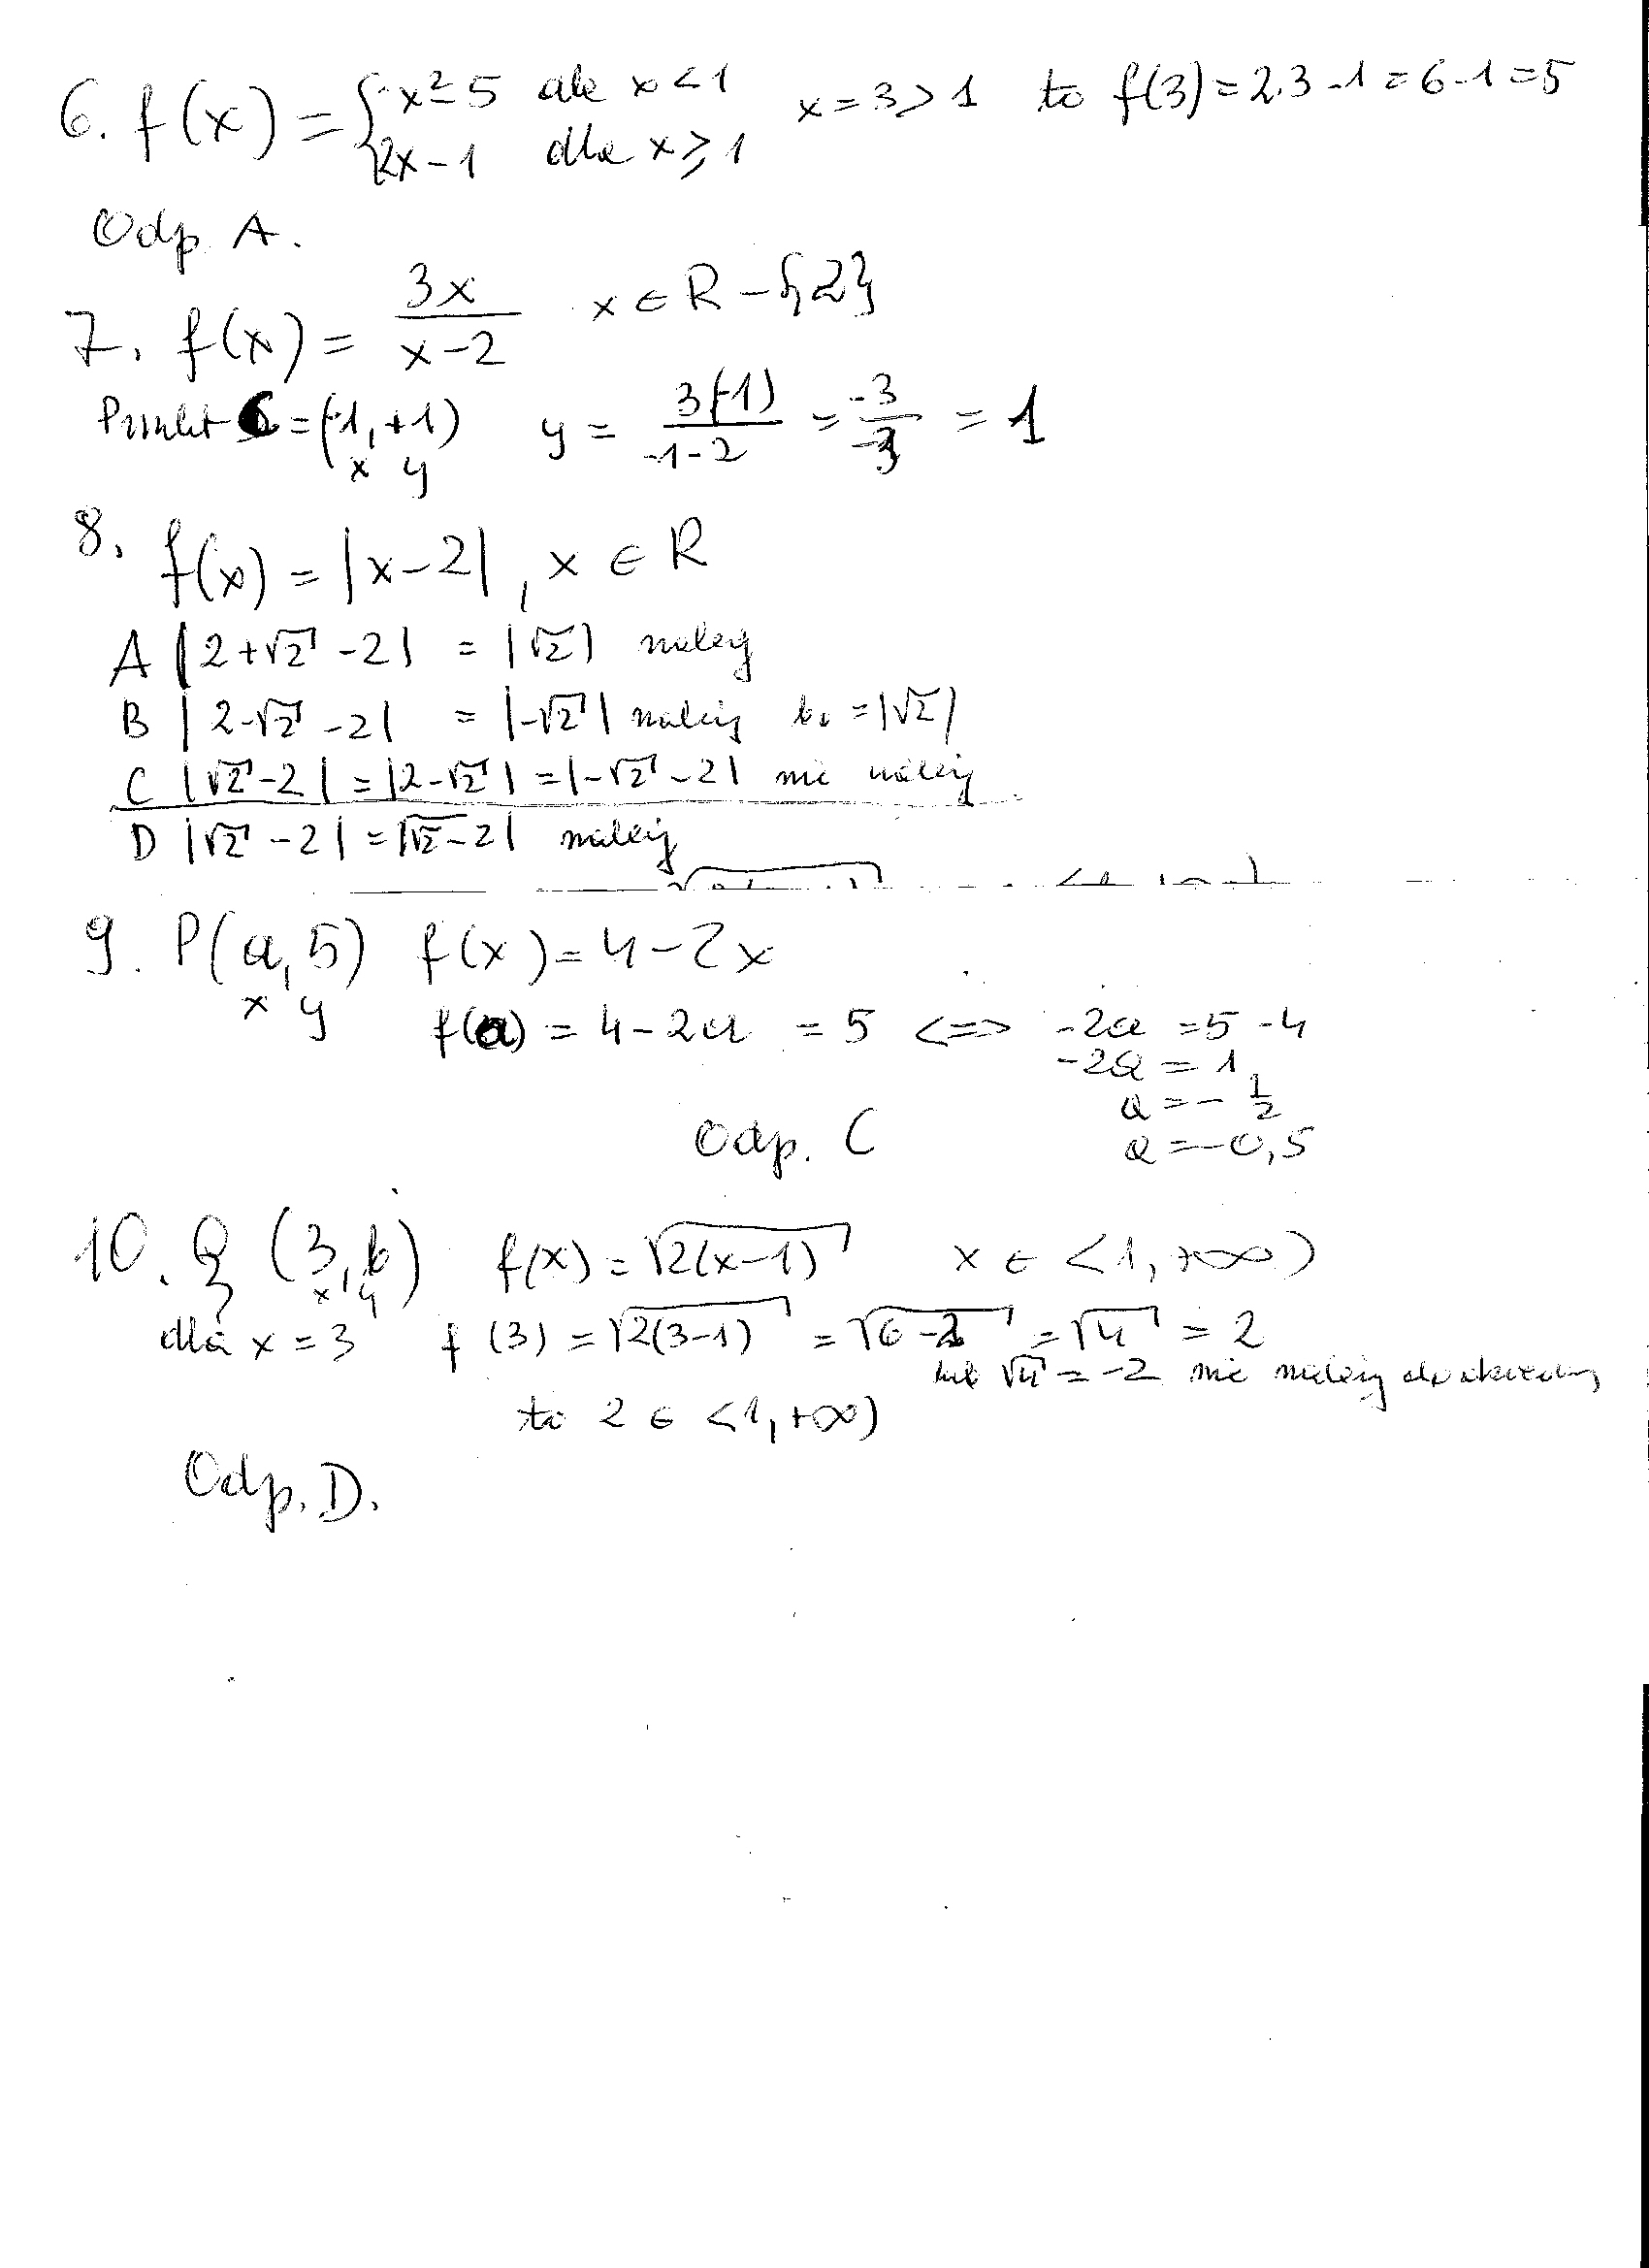 6. f(x) = { x² - 5 dla x < 1 x = 3 > 1 to f(3) = 2·3 - 1 = 6 - 1 = 5
2x - 1 dla x ≥ 1
Odp. A.
7. f(x) = 3x / (x - 2) x ∈ R - {2}
Punkt = (-1, +1) y = 3(-1) / (-1 - 2) = -3 / -3 = 1
x y
8. f(x) = |x - 2|, x ∈ R
A |2 + √2 - 2| = |√2| należy
B |2 - √2 - 2| = |-√2| należy bo = |√2|
C |√2 - 2| = |2 - √2| = |-√2 - 2| nie należy
D |√2 - 2| = |√2 - 2| należy
9. P(a, 5) f(x) = 4 - 2x
x y
f(a) = 4 - 2a = 5 <=> -2a = 5 - 4
-2a = 1
a = - 1/2
Odp. C a = -0,5
10. Q (3, b) f(x) = √2(x - 1) x ∈ <1, +∞)
x y
dla x = 3 f(3) = √2(3 - 1) = √6 - 2 = √4 = 2
lub √4 = -2 nie należy do
to 2 ∈ <1, +∞)
Odp. D.